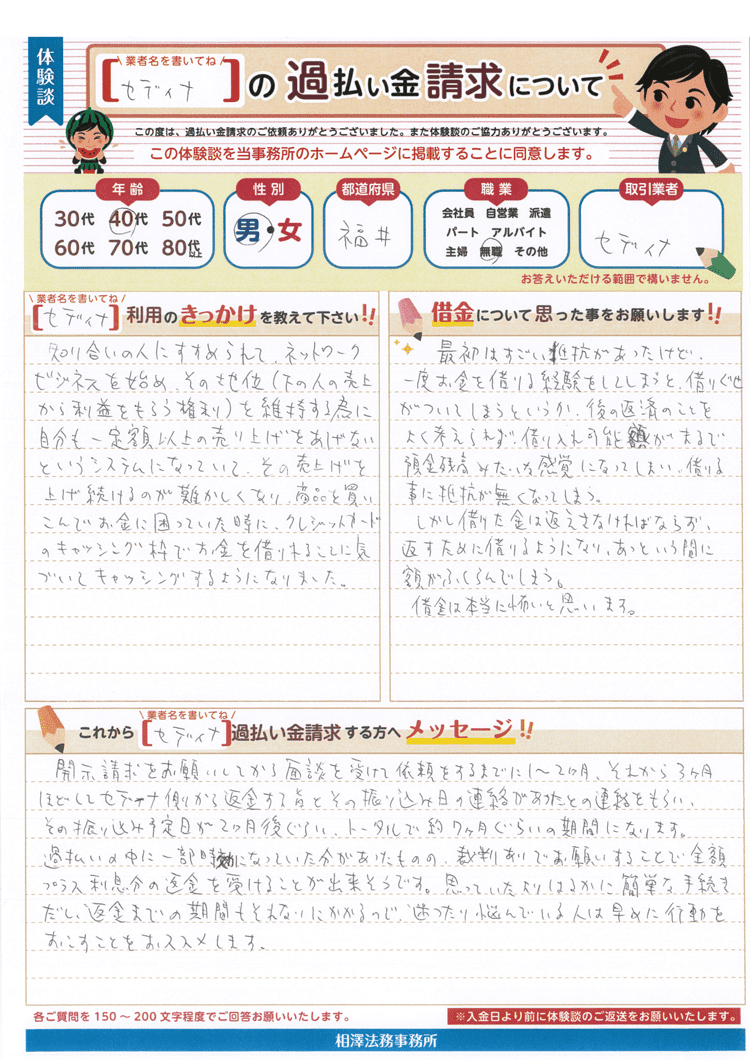 体験談
\ 業者名を書いてね /
[セディナ]の過払い金請求について
この度は、過払い金請求のご依頼ありがとうございました。また体験談のご協力ありがとうございます。
この体験談を当事務所のホームページに掲載することに同意します。
年齢
30代 40代 50代
60代 70代 80代以上
性別
男・女
都道府県
福井
職業
会社員 自営業 派遣
パート アルバイト
主婦 無職 その他
取引業者
セディナ
お答えいただける範囲で構いません。
\ 業者名を書いてね /
[セディナ]利用のきっかけを教えて下さい!!
知り合いの人にすすめられて、ネットワーク
ビジネスを始め、その地位(下の人の売上
から利益をもらう権利)を維持する為に
自分も一定額以上の売り上げをあげない
というシステムになっていて、その売上げを
上げ続けるのが難かしくなり、商品を買い
こんでお金に困っていた時に、クレジットカード
のキャッシング枠でお金を借りれることに気
づいてキャッシングするようになりました。
借金について思った事をお願いします!!
最初はすごい抵抗があったけど、
一度お金を借りる経験をししてしまうと、借りぐせ
がついてしまうというか、後の返済のことを
よく考えられず、借り入れ可能額がまるで
預金残高みたいな感覚になってしまい、借りる
事に抵抗が無くなってしまう。
しかし借りた金は返えさなければならず、
返すために借りるようになり、あっという間に
額がふくらんでしまう。
借金は本当に怖いと思います。
\ 業者名を書いてね /
これから[セディナ]過払い金請求する方へメッセージ!!
開示請求をお願いしてから面談を受けて依頼をするまでに1〜2ヶ月、それから3ヶ月
ほどしてセディナ側から返金する旨とその振り込み日の連絡があたとの連絡をもらい、
その振り込み予定日が2ヶ月後ぐらい、トータルで約7ヶ月ぐらいの期間になります。
過払いの中に一部時効になっていた分があたものの、裁判ありでお願いすることで全額
プラス利息分の返金を受けることが出来そうです。思っていたよりはるかに簡単な手続き
だし、返金までの期間もそれなりにかかるので、迷ったり悩んでいる人は早めに行動を
おこすことをおススメします。
各ご質問を150〜200文字程度でご回答お願いいたします。
※入金日より前に体験談のご返送をお願いいたします。
相澤法務事務所